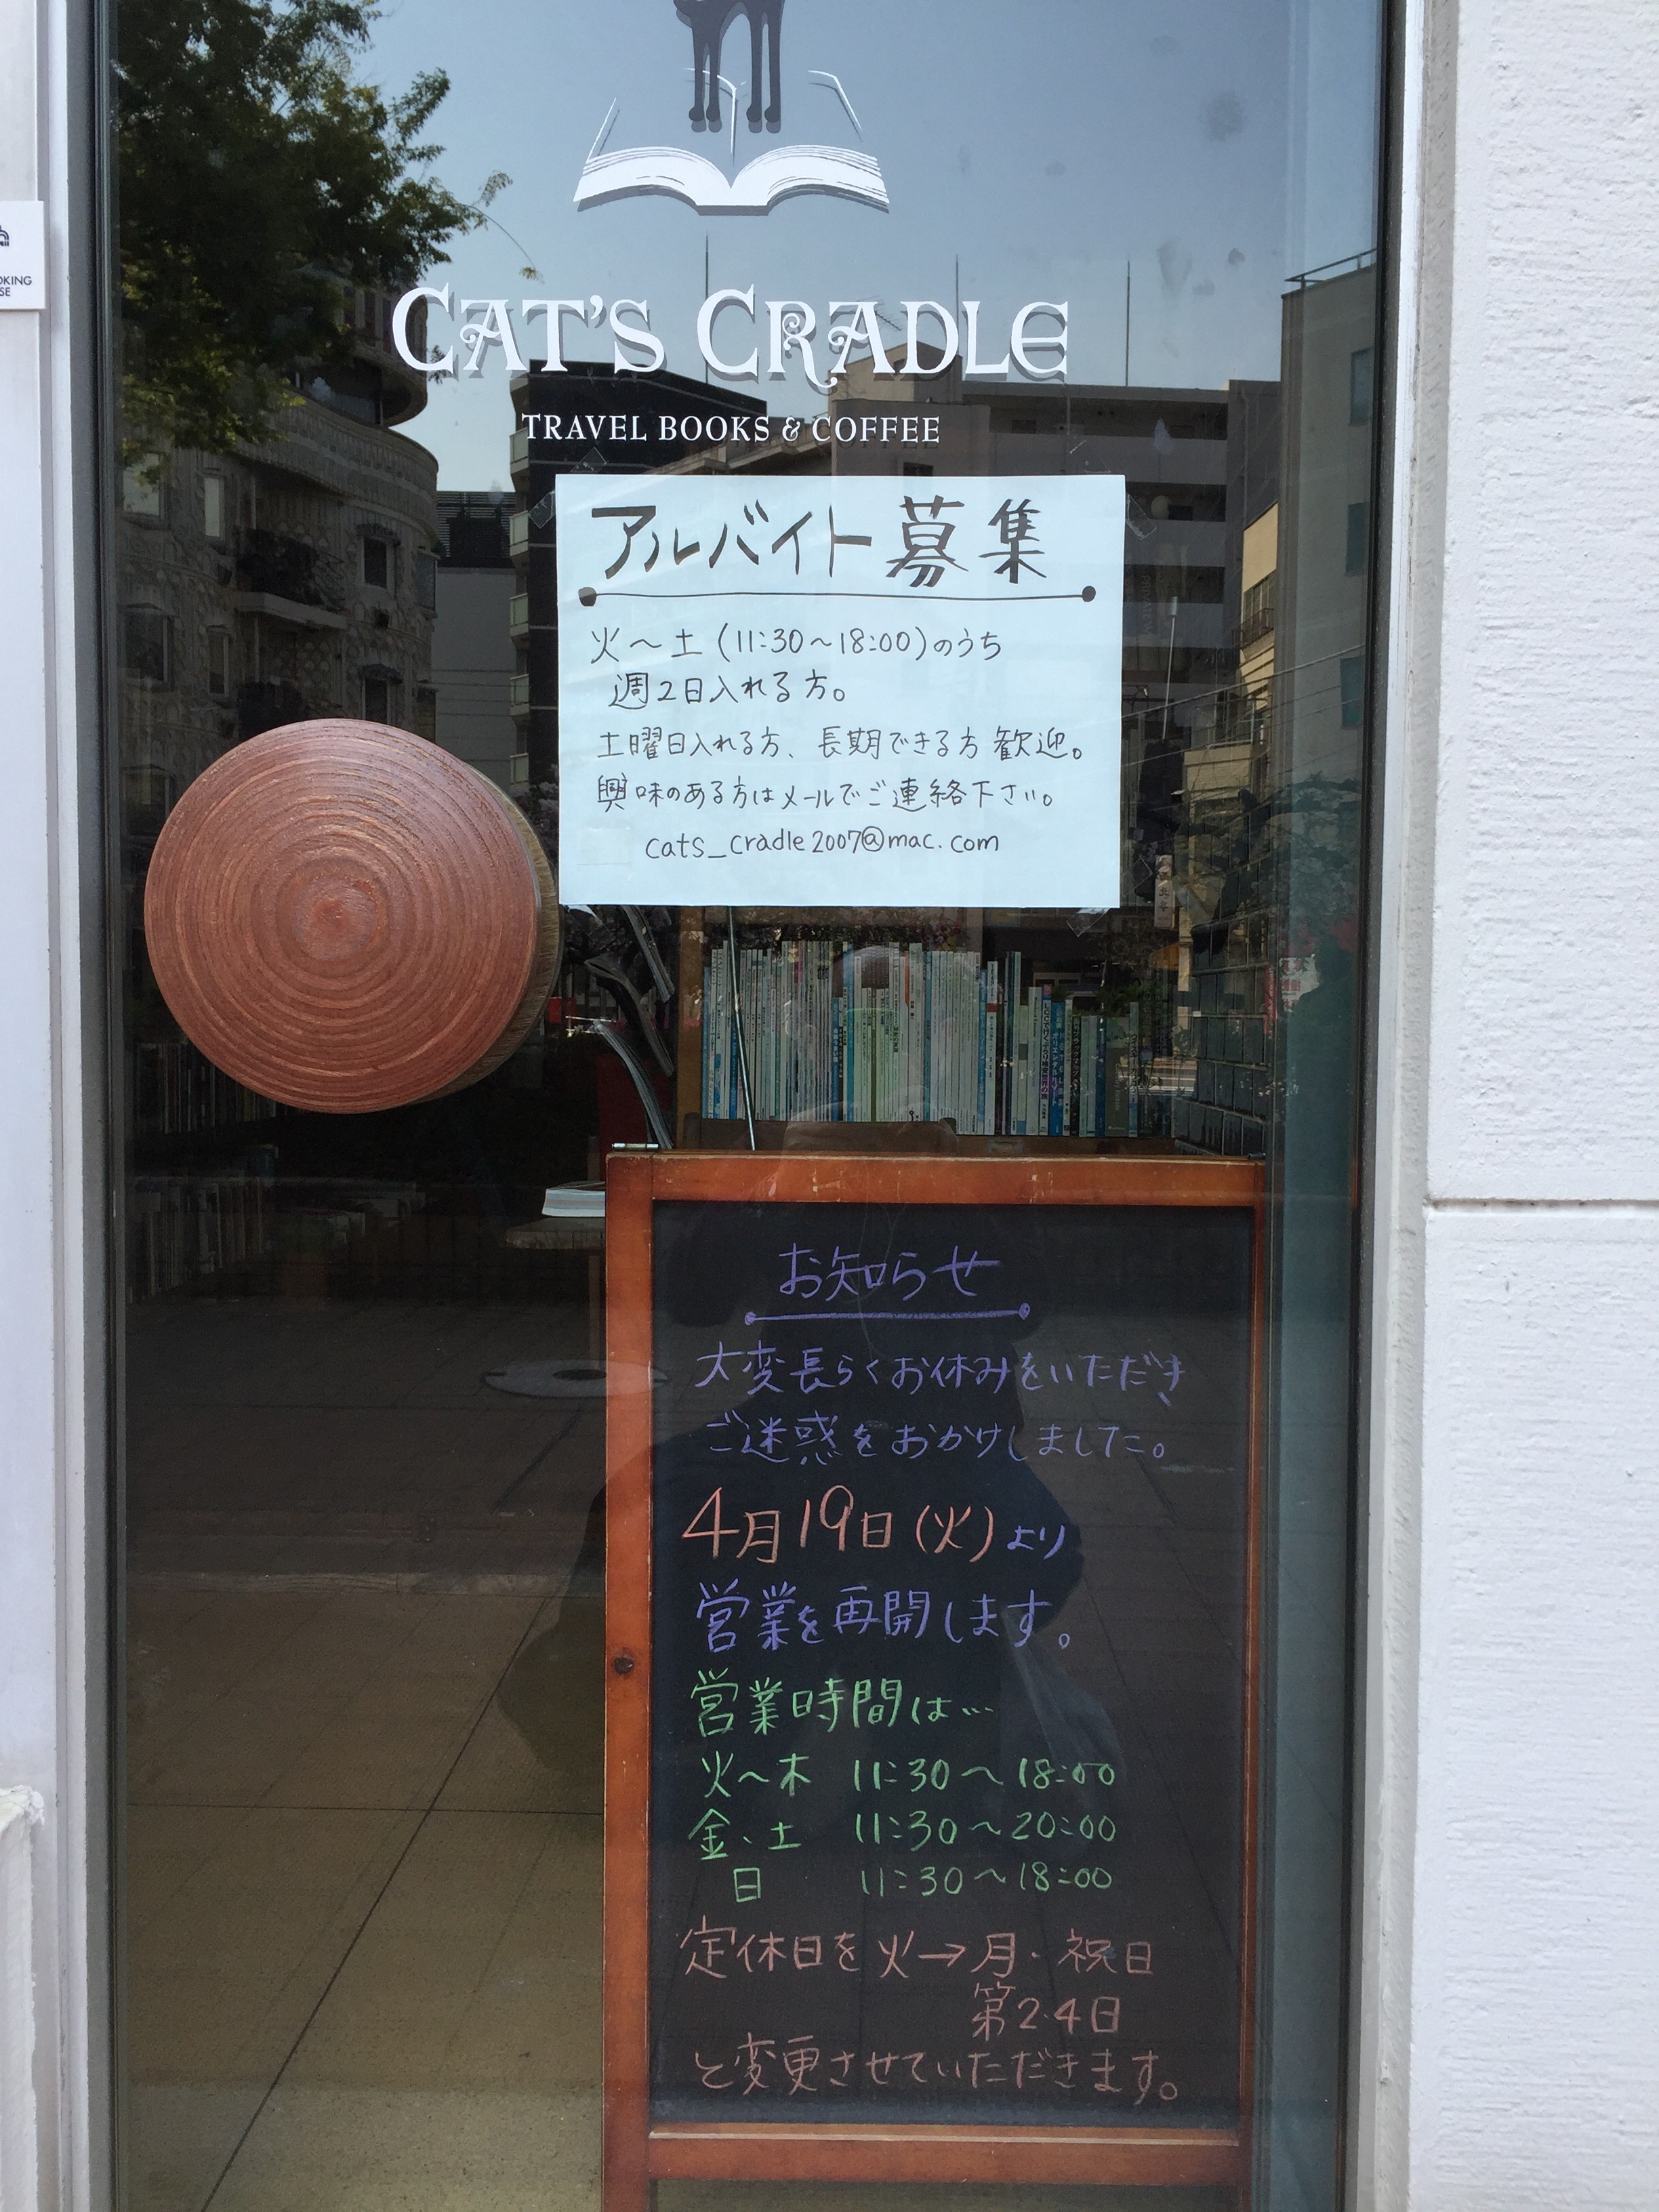 OKING
SE
CAT'S CRADLE
TRAVEL BOOKS & COFFEE
アルバイト募集
火〜土(11:30〜18:00)のうち
週2日入れる方。
土曜日入れる方、長期できる方歓迎。
興味のある方はメールでご連絡下さい。
cats_cradle2007@mac.com
お知らせ
大変長らくお休みをいただき、
ご迷惑をおかけしました。
4月19日(火)より
営業を再開します。
営業時間は…
火〜木 11:30〜18:00
金・土 11:30〜20:00
日 11:30〜18:00
定休日を火→月・祝日
第2.4日
と変更させていただきます。